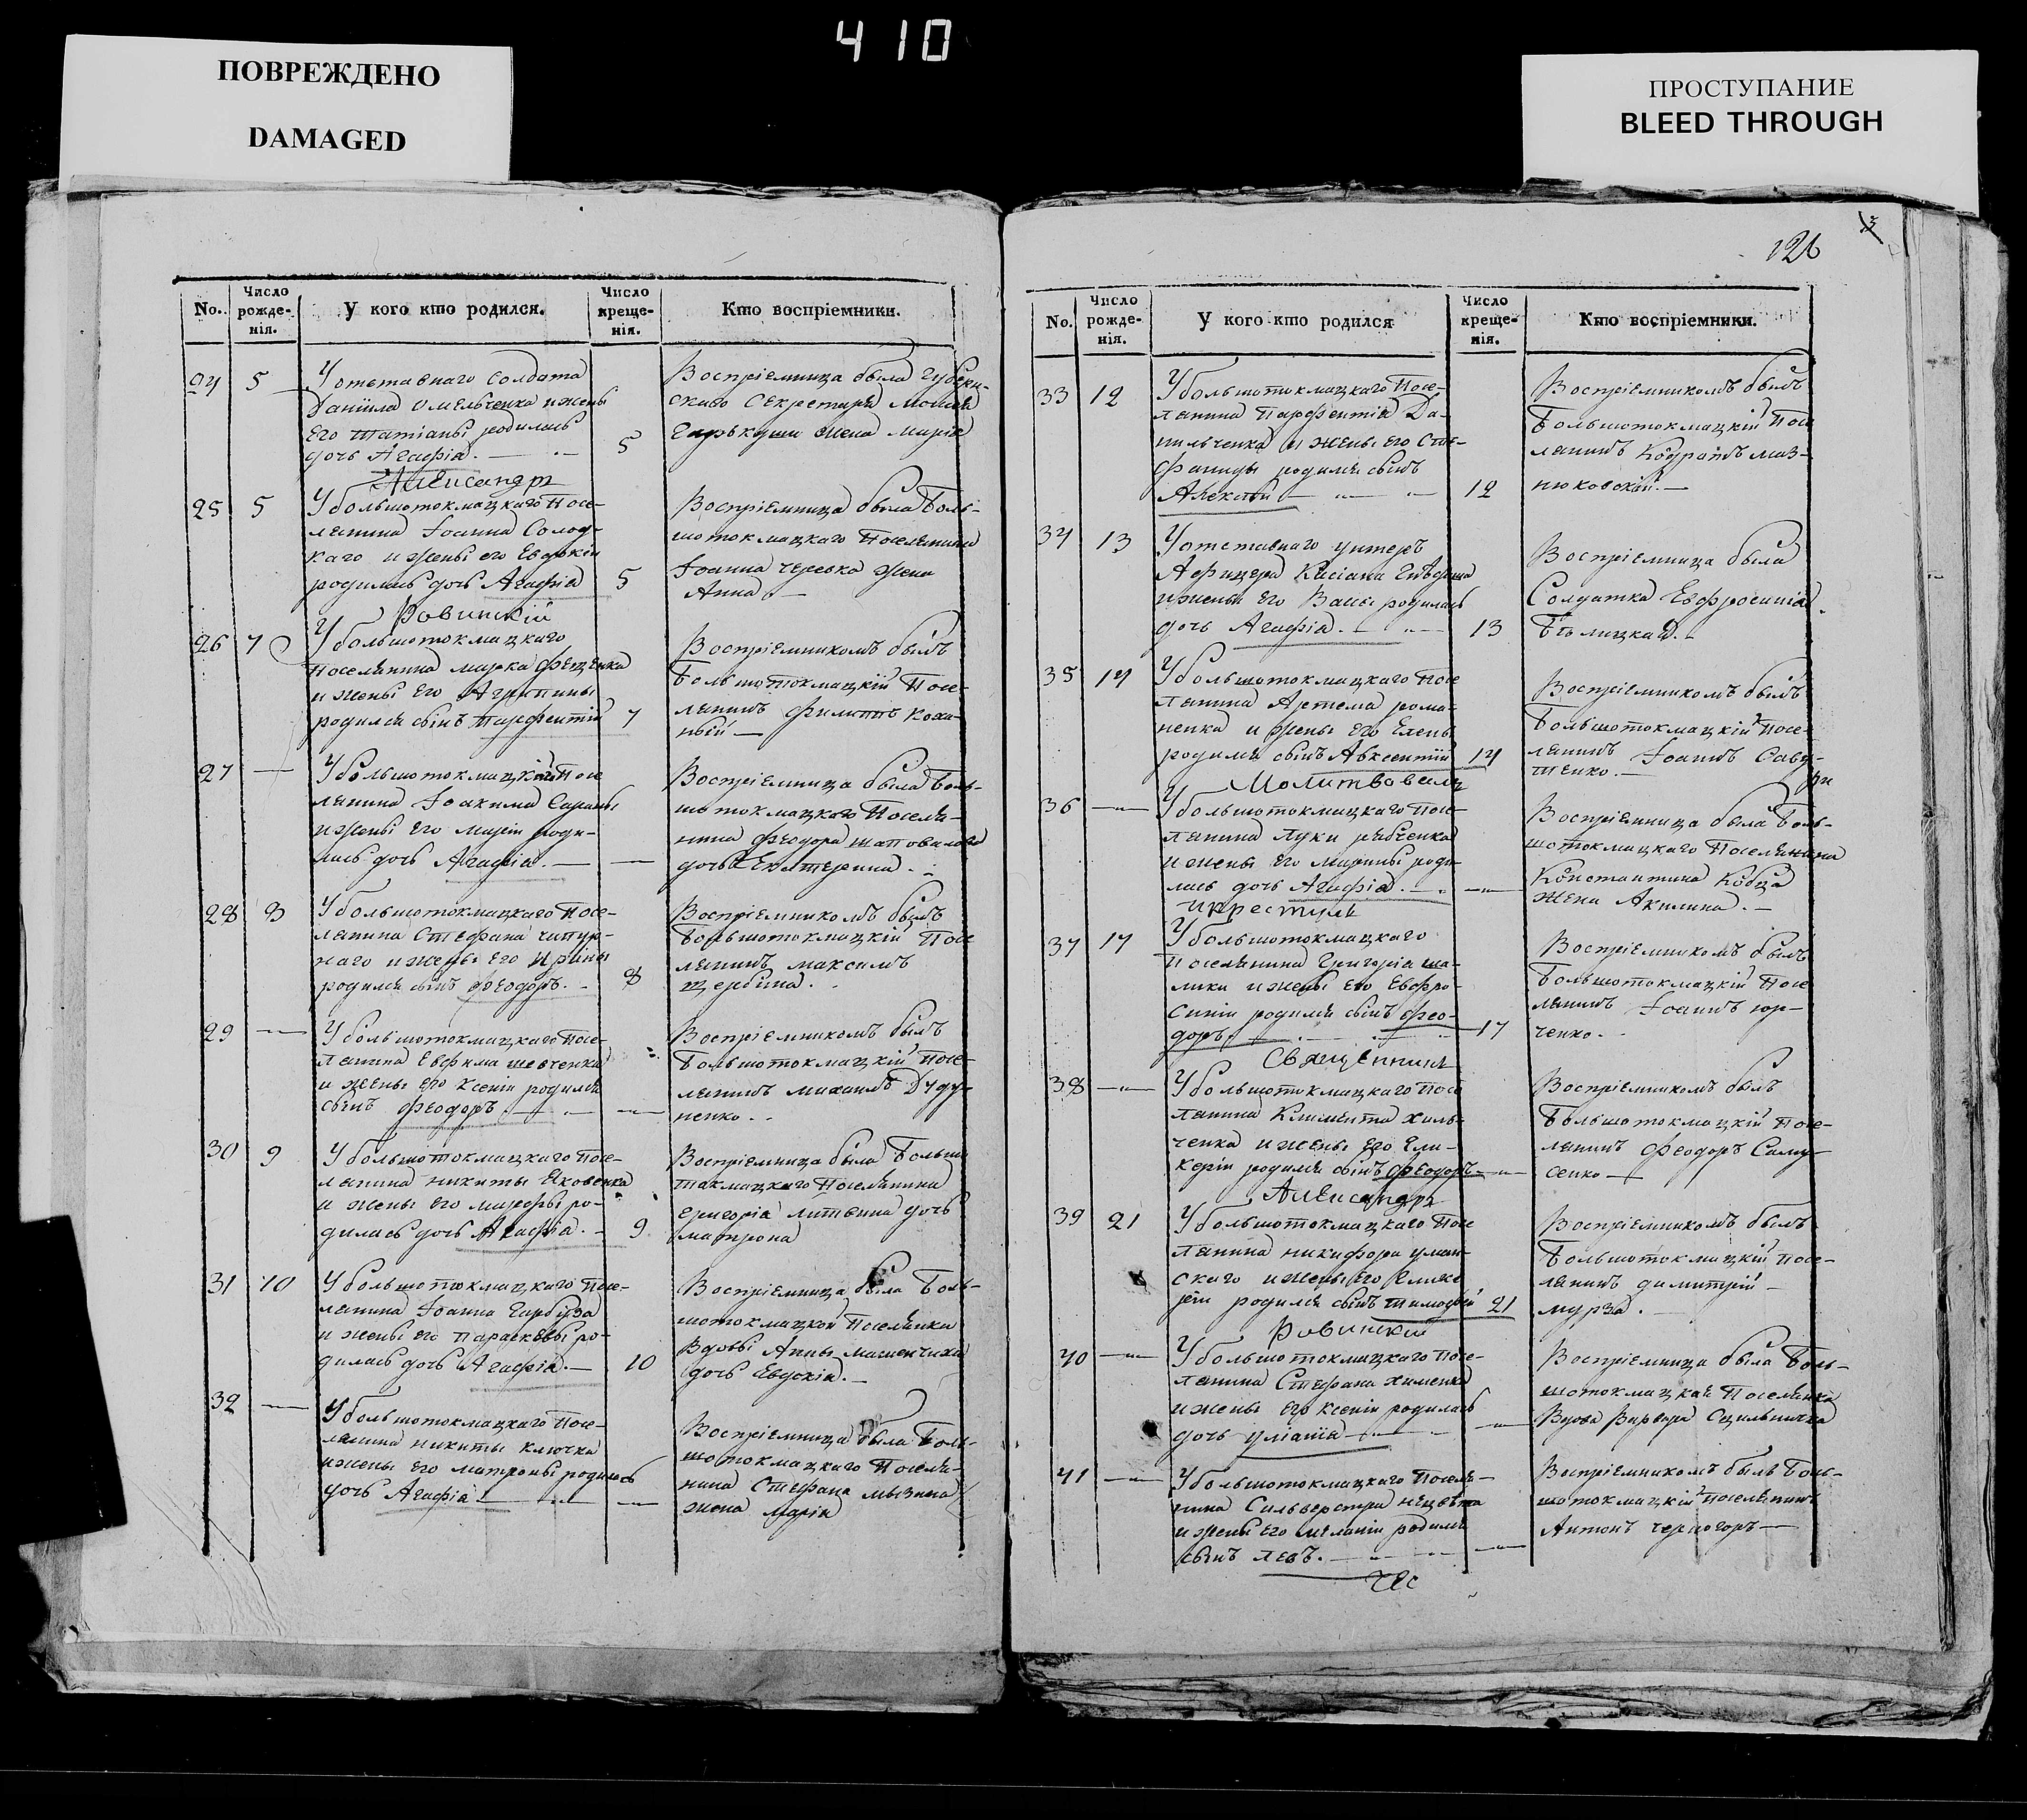 410
ПОВРЕЖДЕНО
DAMAGED
ПРОСТУПАНИЕ
BLEED THROUGH
No. Число рожденія. У кого кто родился. Число крещенія. Кто воспріемники.
24 5 Уотставнаго солдата
Даніила Омельченка ижены
Его татіаны родилась
дочь Агафія. 5
Воспріемница была Губерн-
скаго Секретаря
жена марія
Александръ
25 5 Убольшотокмацкаго Посе-
лянина Іоанна Солод-
каго ижены его Евдокіи
родилась дочь Агафія 5
Воспріемница была Боль-
шотокмацкаго Поселянина
Іоанна жена
Анна
Ровинскій
26 7 Убольшотокмацкаго
Поселянина марка Фещенка
и жены Его Агрипины
родился сынъ парфентій 7
Воспріемникомъ былъ
Большотокмацкій Посе-
лянинъ Филиппъ Коха-
ный
27 — Убольшотокмацкаго Посе
лянина Іоакима Сараны
ижены Его маріи роди-
лась дочь Агафія. —
Воспріемница была Боль-
шотокмацкаго Поселя-
нина Феодора шаповалова
дочь Екатерина.
28 8 Убольшотокмацкаго Посе-
лянина Стефана чипур-
наго ижены Его Ирины
родился сынъ Феодоръ. 8
Воспріемникомъ былъ
Большотокмацкій Посе
лянинъ максимъ
щербина.
29 — Убольшотокмацкаго Посе-
лянина Евфима шевченка
и жены его Ксеніи родился
сынъ Феодоръ —
Воспріемникомъ былъ
Большотокмацкій Посе-
лянинъ михаилъ Дуду-
ненко.
30 9 Убольшотокмацкаго Посе-
лянина никиты Яковенка
и жены Его марфы ро-
дилась дочь Агафія. 9
Воспріемница была Большо
токмацкаго Поселянина
григорія литвина дочь
матрона
31 10 Убольшотокмацкаго Посе-
лянина Іоанна Гарбуза
и жены его параскевы ро-
дилась дочь Агафія. 10
Воспріемница была Боль-
шотокмацкой Поселянки
Вдовы Анны
дочь Евдокія.
32 — Убольшотокмацкаго Посе-
лянина никиты ключка
ижены Его матроны родилась
дочь Агафія —
Воспріемница была Боль-
шотокмацкаго Поселя-
нина Стефана мызина
жена марія
126
No. Число рожденія. У кого кто родился Число крещенія. Кто воспріемники.
33 12 Убольшотокмацкаго Посе-
лянина Парфентія Да-
нильченка и жены Его Сте-
фаниды родился сынъ
Алексій 12
Воспріемникомъ былъ
Большотокмацкій Посе
лянинъ Кодратъ маз-
нюковскій.
34 13 Уотставнаго унтеръ
Афицера Касіана
ижены Его Васы родилась
дочь Агафія. 13
Воспріемница была
Солдатка Евфросинія
Бѣлицкая.
35 14 Убольшотокмацкаго Посе
лянина Артема рома-
ненка и жены Его Елены
родился сынъ Авксентій 14
Воспріемникомъ былъ
Большотокмацкій Посе-
лянинъ Іоаннъ Саву-
тенко.
Молитвовалъ
36 — Убольшотокмацкаго Посе-
лянина Луки рябченка
ижены Его марины роди-
лась дочь Агафія. —
Воспріемница была Боль-
шотокмацкаго Поселянина
Константина Кобца
жена Акилина.
икрестилъ
37 17 Убольшотокмацкаго
Поселянина Григорія ша-
лики ижены Его Евфро-
синіи родился сынъ Фео-
доръ. 17
Воспріемникомъ былъ
Большотокмацкій Посе
лянинъ Іоаннъ юр-
ченко.
Священникъ
38 — Убольшотокмацкаго Посе
лянина Климента халь-
ченка ижены Его Гли-
керіи родился сынъ Феодоръ —
Воспріемникомъ былъ
Большотокмацкій Посе-
лянинъ Феодоръ Саму-
сенко
Александръ
39 21 Убольшотокмацкаго Посе
лянина никифора уман-
скаго ижены Его Глике
ріи родился сынъ тимофей 21
Воспріемникомъ былъ
Большотокмацкій Посе-
лянинъ димитрій
мурза.
Ровинскій
40 — Убольшотокмацкаго Посе-
лянина Стефана хименка
ижены Его ксеніи родилась
дочь уліанія —
Воспріемница была Боль-
шотокмацкая Поселянка
Вдова Варвара
41 — Убольшотокмацкаго Поселя-
нина Сильвестра нецвѣта
ижены Его меланіи родился
сынъ левъ. —
Воспріемникомъ былъ Боль-
шотокмацкій Поселянинъ
Антонъ черногоръ